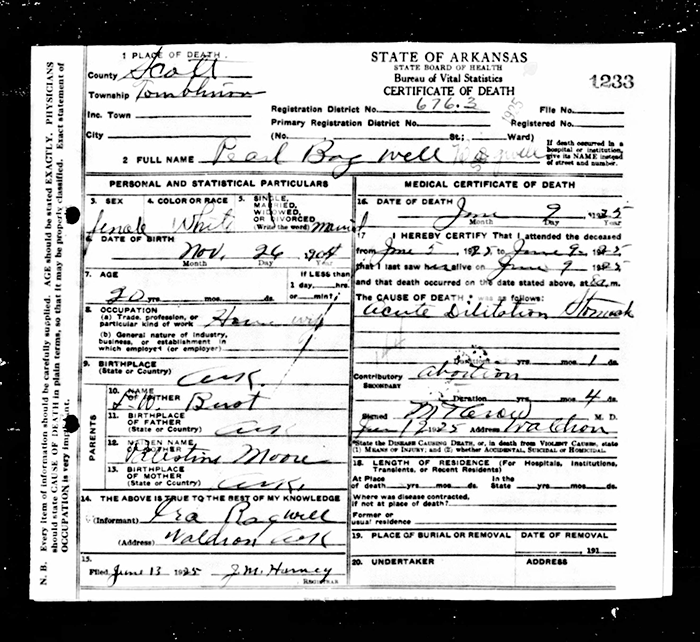 1 PLACE OF DEATH.
County Scott
Township Tomlinson
Inc. Town
City
STATE OF ARKANSAS
STATE BOARD OF HEALTH
Bureau of Vital Statistics
CERTIFICATE OF DEATH
1233
Registration District No. 676.3 File No.
1925
Primary Registration District No. Registered No.
(No. St.; Ward)
If death occurred in a hospital or institution, give its NAME instead of street and number.
2 FULL NAME Pearl Bagwell
PERSONAL AND STATISTICAL PARTICULARS
3. SEX 4. COLOR OR RACE 5. SINGLE, MARRIED, WIDOWED, OR DIVORCED (Write the word)
female White Married
6. DATE OF BIRTH
Nov. 26 1904
Month Day Year
7. AGE If LESS than 1 day, hrs. or min.?
20 yrs. mos. ds.
8. OCCUPATION
(a) Trade, profession, or particular kind of work House wife
(b) General nature of industry, business, or establishment in which employed (or employer)
9. BIRTHPLACE
(State or Country) Ark.
PARENTS
10. NAME OF FATHER
11. BIRTHPLACE OF FATHER
(State or Country) Ark
12. MAIDEN NAME OF MOTHER
Moore
13. BIRTHPLACE OF MOTHER
(State or Country) Ark.
14. THE ABOVE IS TRUE TO THE BEST OF MY KNOWLEDGE
(Informant) Ira Bagwell
(Address) Waldron Ark
15.
Filed June 13 1925 J. M. Harvey
REGISTRAR
MEDICAL CERTIFICATE OF DEATH
16. DATE OF DEATH
June 9 1925
Month Day Year
17. I HEREBY CERTIFY That I attended the deceased
from June 5 1925 to June 9 1925
that I last saw her alive on June 9 1925
and that death occurred on the date stated above, at m.
The CAUSE OF DEATH was as follows:
Acute Dilitation Stomach
Duration yrs. mos. 1 ds.
Contributory Abortion
SECONDARY
Duration yrs. mos. 4 ds.
Signed M. D.
1925 Address Waldron
*State the DISEASE CAUSING DEATH, or, in death from VIOLENT CAUSES, state (1) MEANS OF INJURY; and (2) whether ACCIDENTAL, SUICIDAL or HOMICIDAL.
18. LENGTH OF RESIDENCE (For Hospitals, Institutions, Transients, or Recent Residents)
At Place of death yrs. mos. ds. In the State yrs. mos. ds.
Where was disease contracted, if not at place of death?
Former or usual residence
19. PLACE OF BURIAL OR REMOVAL DATE OF REMOVAL
191
20. UNDERTAKER ADDRESS
N. B. Every item of information should be carefully supplied. AGE should be stated EXACTLY. PHYSICIANS
should state CAUSE OF DEATH in plain terms, so that it may be properly classified. Exact statement of
OCCUPATION is very important.